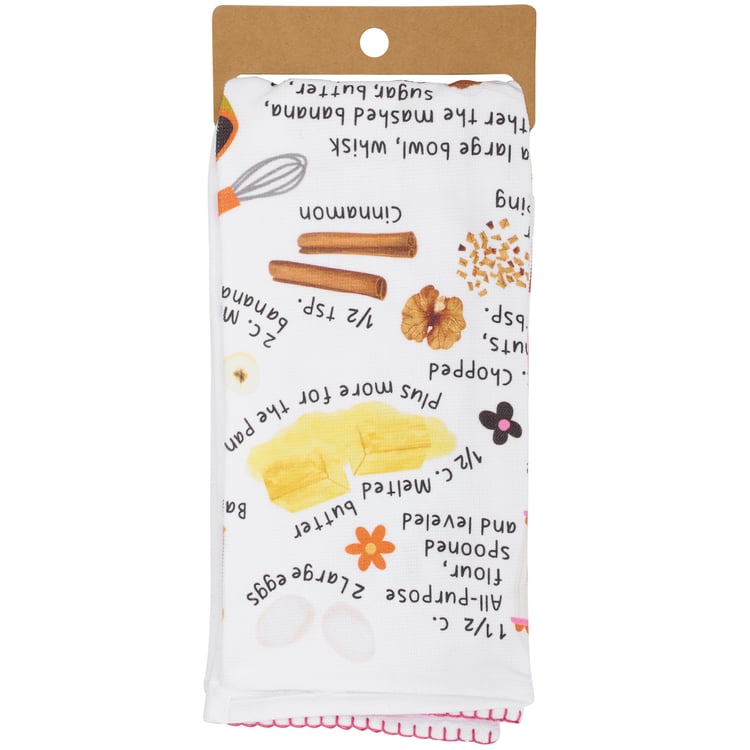 1 1/2 c.
All-purpose
flour,
spooned
and leveled
2 Large eggs
1/2 c. Melted
butter
Ba
plus more for the pan
c. Chopped
nuts,
bsp.
1/2 tsp.
Cinnamon
2 c. M
banana
ping
a large bowl, whisk
ther the mashed banana,
sugar, butter,